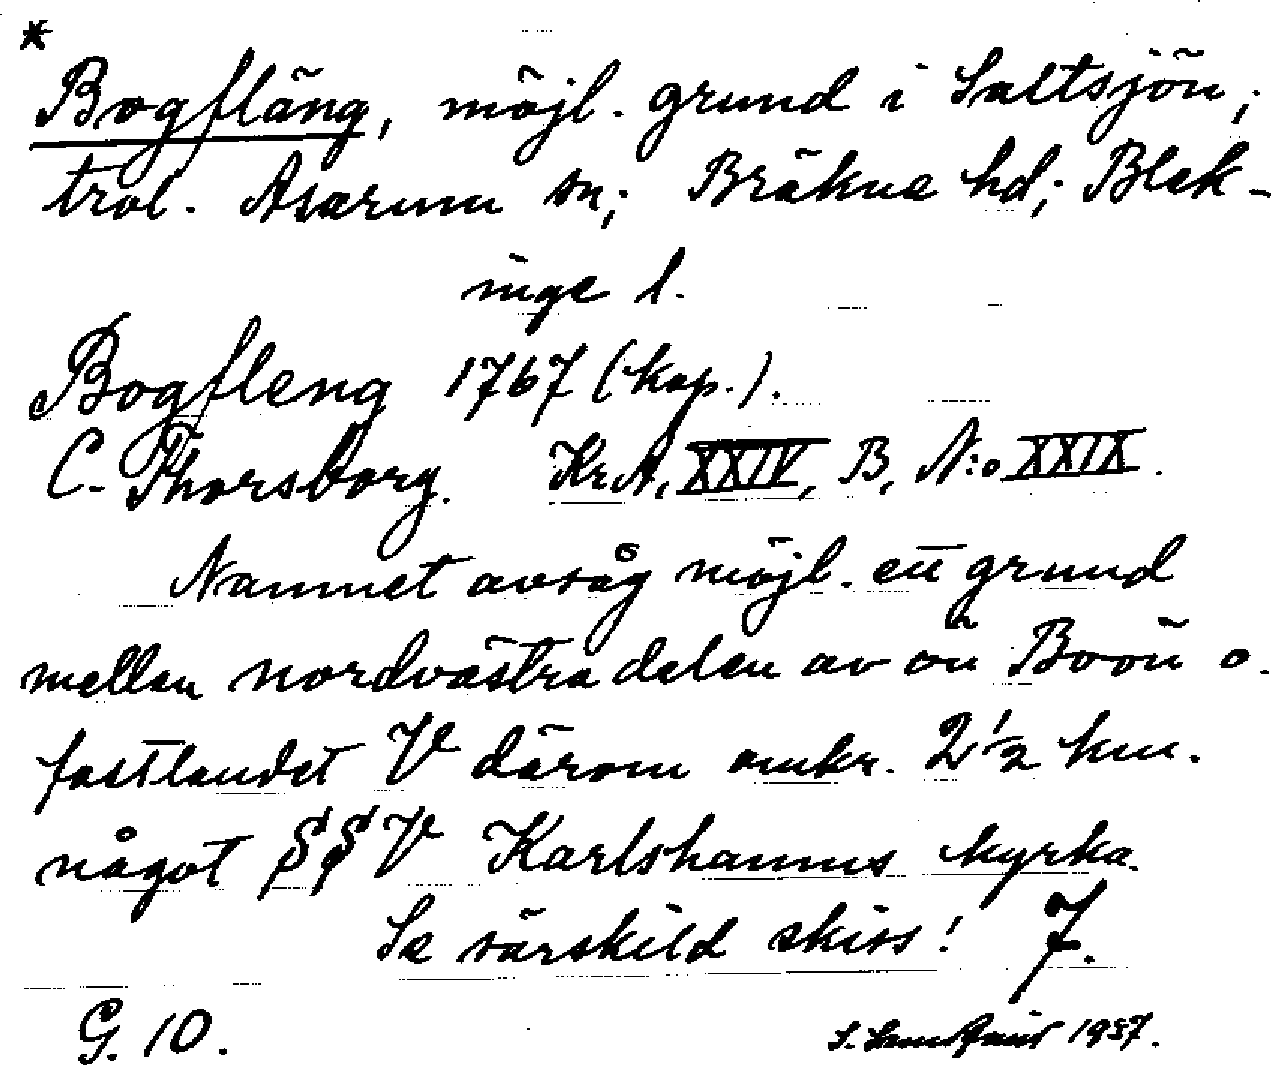 *
Bogfläng, möjl. grund i Saltsjön;
trol. Asarum sn; Bräkne hd; Blek-
inge l.
Bogfleng 1767 (kop.).
C. Thorsborg. Kr. A, XXIV, B, N:o XXIX.
Namnet avsåg möjl. en grund
mellan nordvästra delen av ön Boön o.
fastlandet V därom omkr. 2 1/2 km.
något SSV Karlshamns kyrka.
Se särskild skiss! J.
G. 10.
S. 1937.